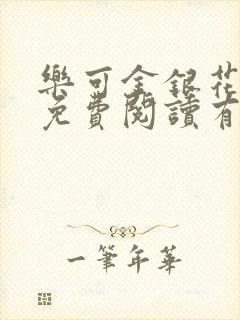 樂可金銀花
免費閱讀有
一筆年華